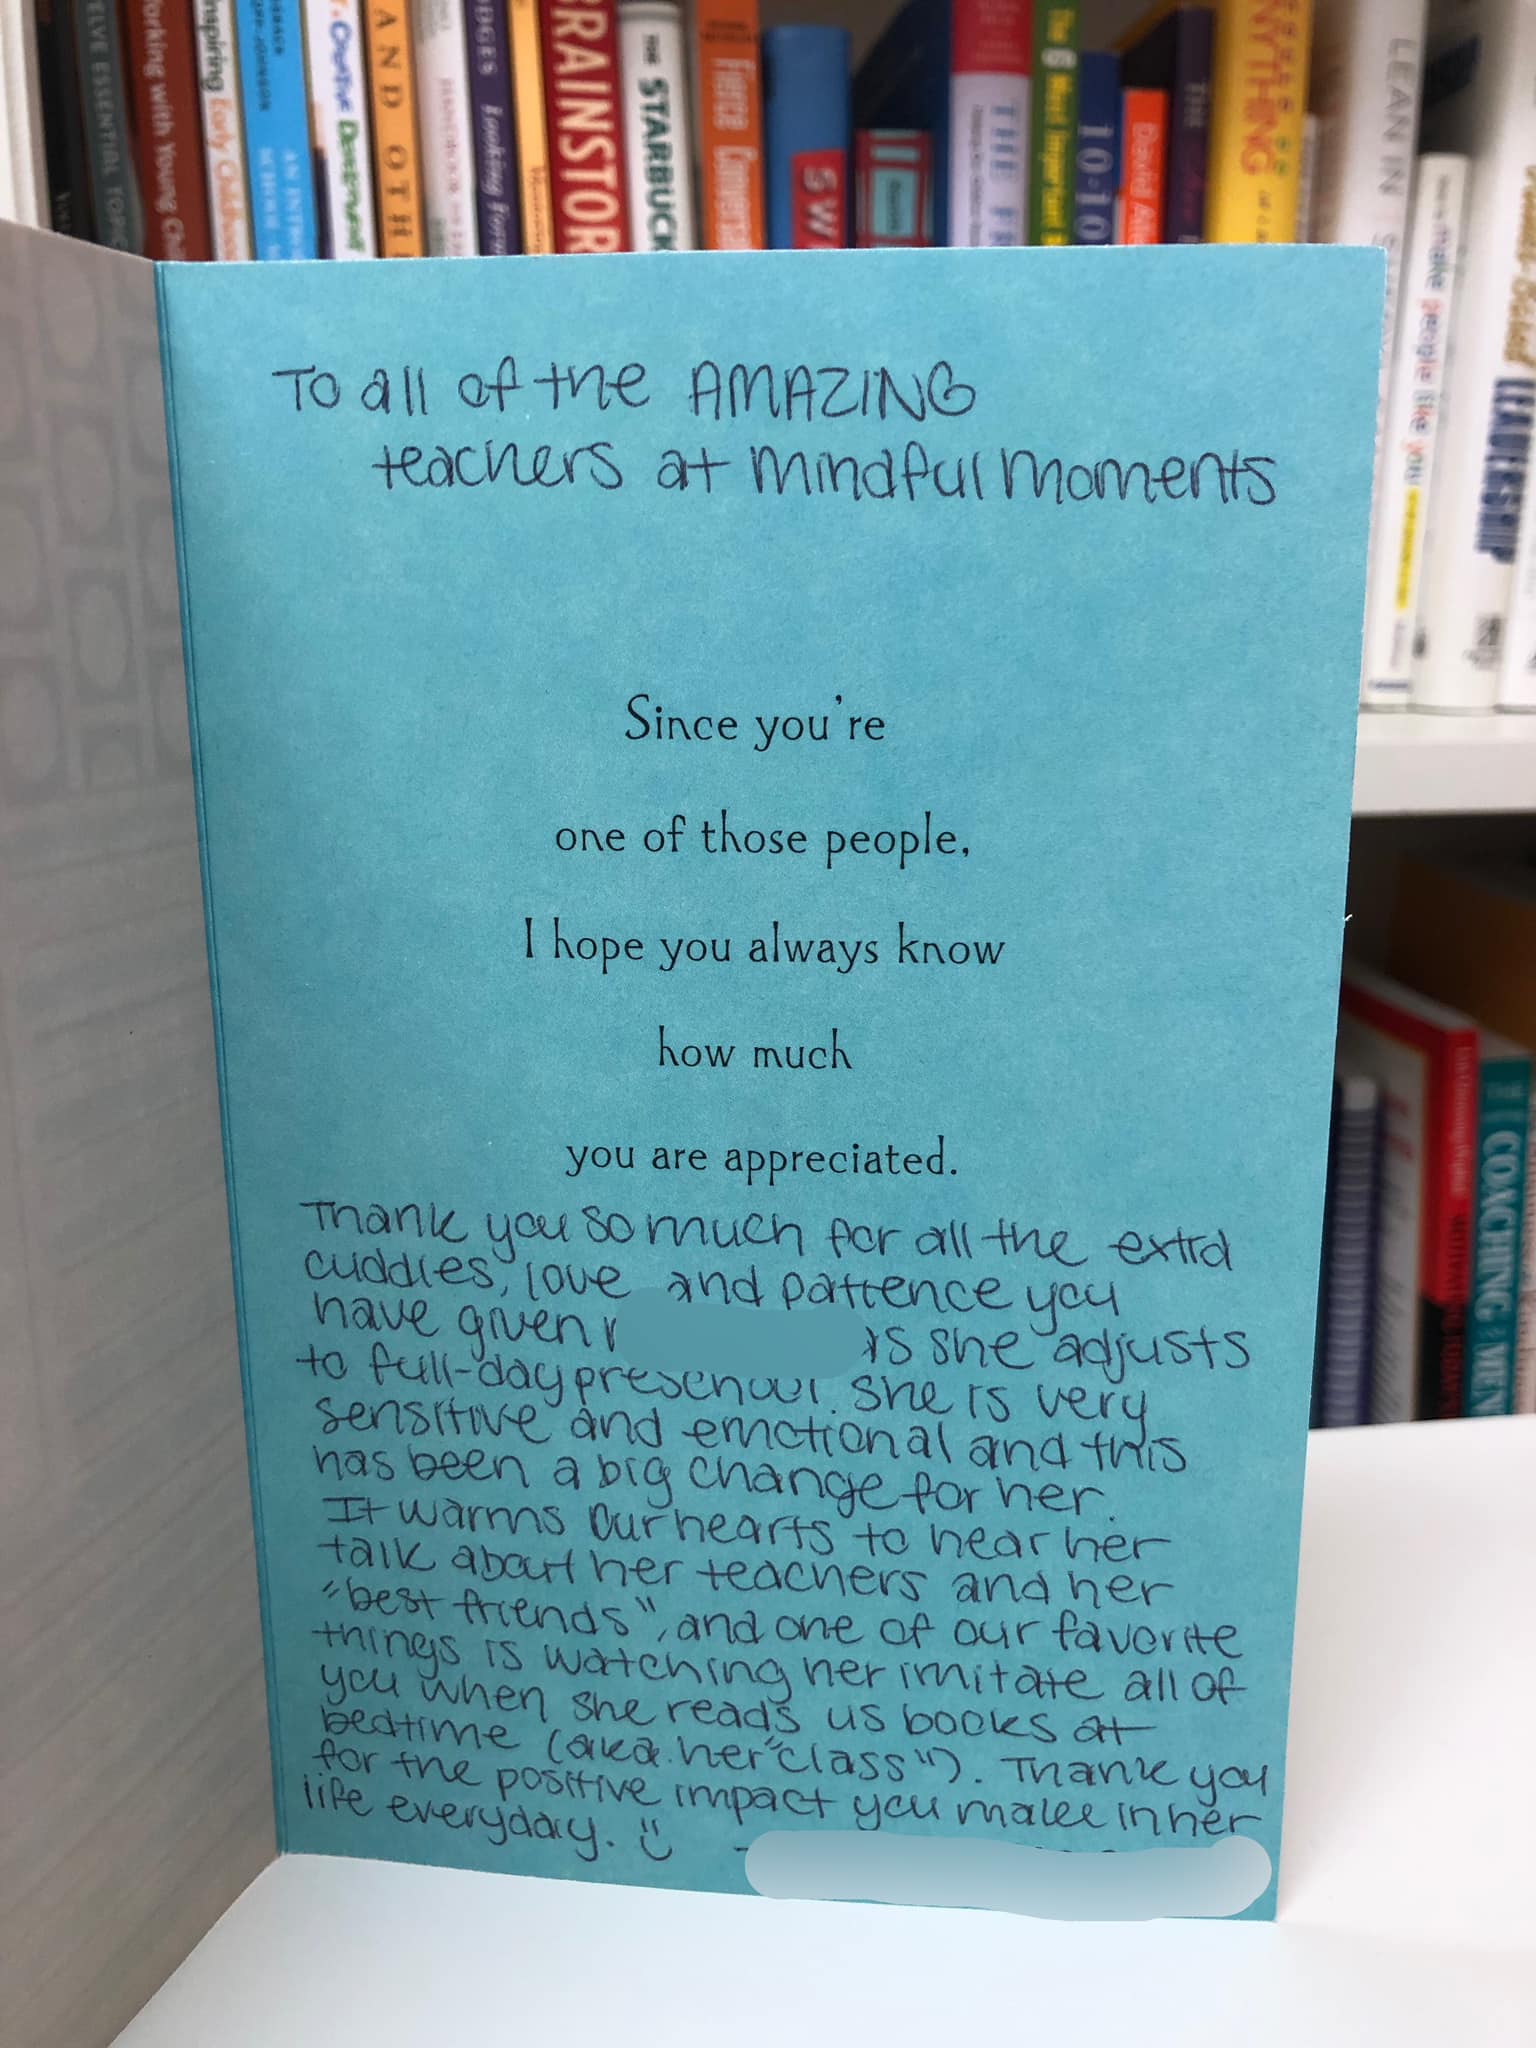 ELVE ESSENTIAL TOPIC
Working with Young Ch
nspiring Early Childhood
AN INTRO
AND OTH
Looking
BRAINSTOR
THE STARBUCK
Fierce Convers
SW
THE
The Most Important
10-10
THE
NYTHING
LEAN IN
make people like you
LEADERSHIP
COACHING
To all of the AMAZING
teachers at mindful moments
Since you're
one of those people,
I hope you always know
how much
you are appreciated.
Thank you so much for all the extra
cuddles, love and patience you
have given as she adjusts
to full-day preschool. She is very
sensitive and emotional and this
has been a big change for her.
It warms our hearts to hear her
talk about her teachers and her
"best friends", and one of our favorite
things is watching her imitate all of
you when she reads us books at
bedtime (aka. her "class"). Thank you
for the positive impact you make in her
life everyday. :)